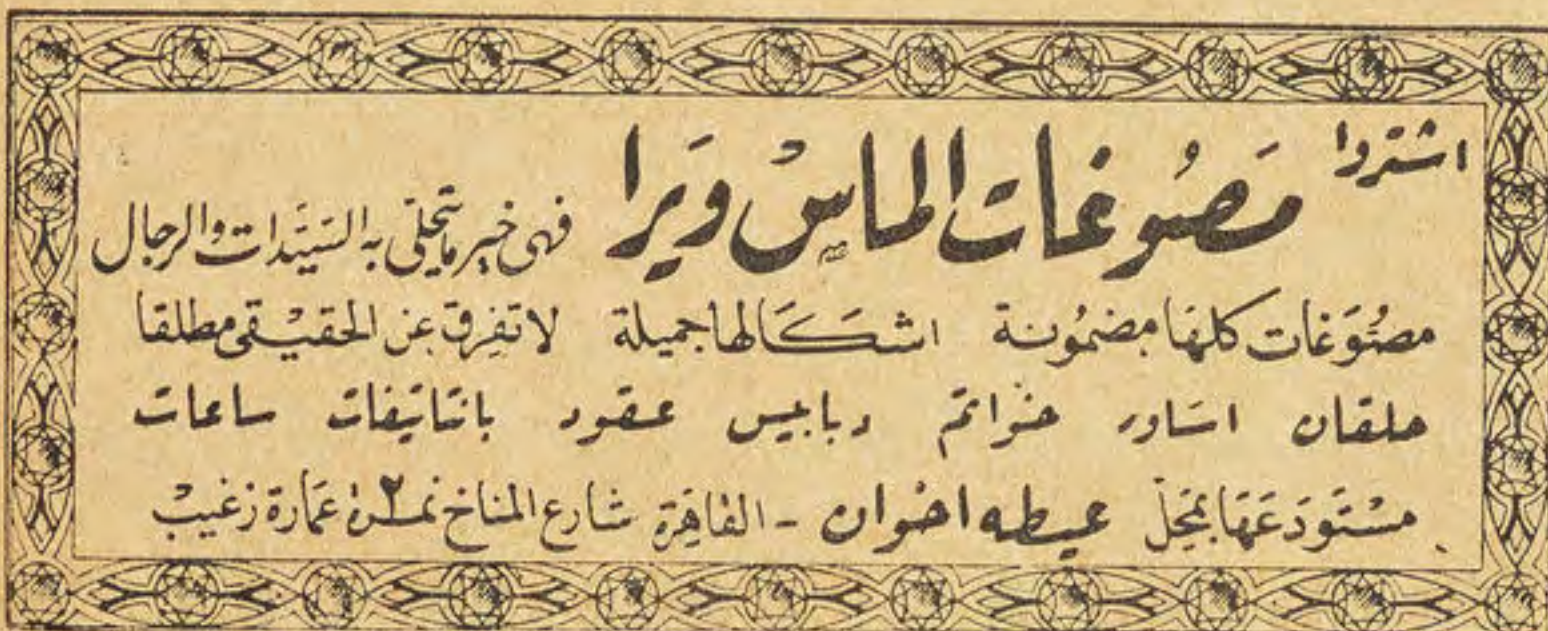 اشتروا مصوغات الماس ويرا فهى خير ما يتحلى به السيدات والرجال
مصوغات كلها مضمونة اشكالها جميلة لا تفرق عن الحقيقى مطلقا
حلقان اساور خواتم دبابيس عقود بانتاتيفات ساعات
مستودعها بمحل عيطه اخوان - القاهرة شارع المناخ نمرة ٢ عمارة زغيب